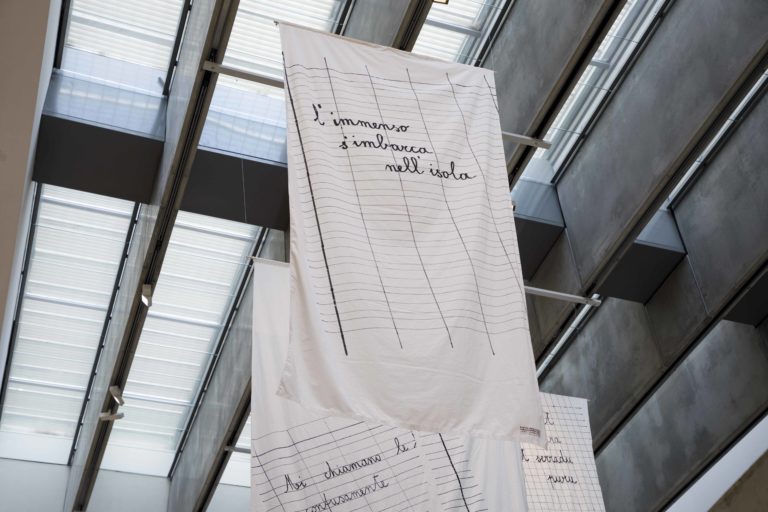 l'immenso
s'imbarca
nell'isola
Mi chiamano le
confusamente
serredu
puru